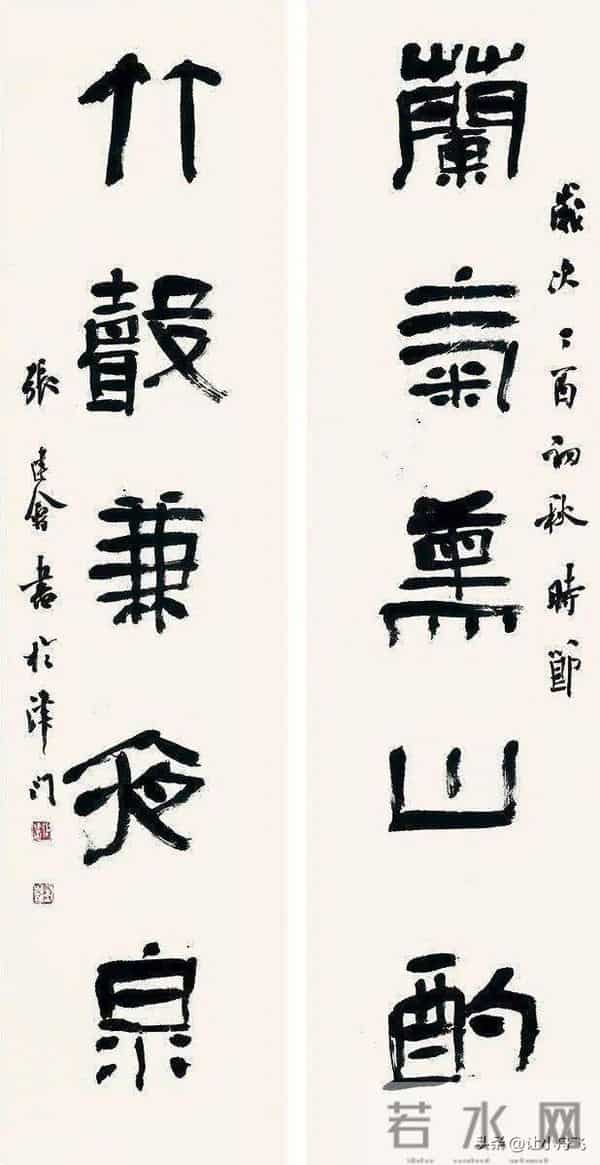 歲次酉初秋時節
蘭氣熏山酌
竹聲兼夜泉
張建會書於津門
若水网
头条@让小丹飞